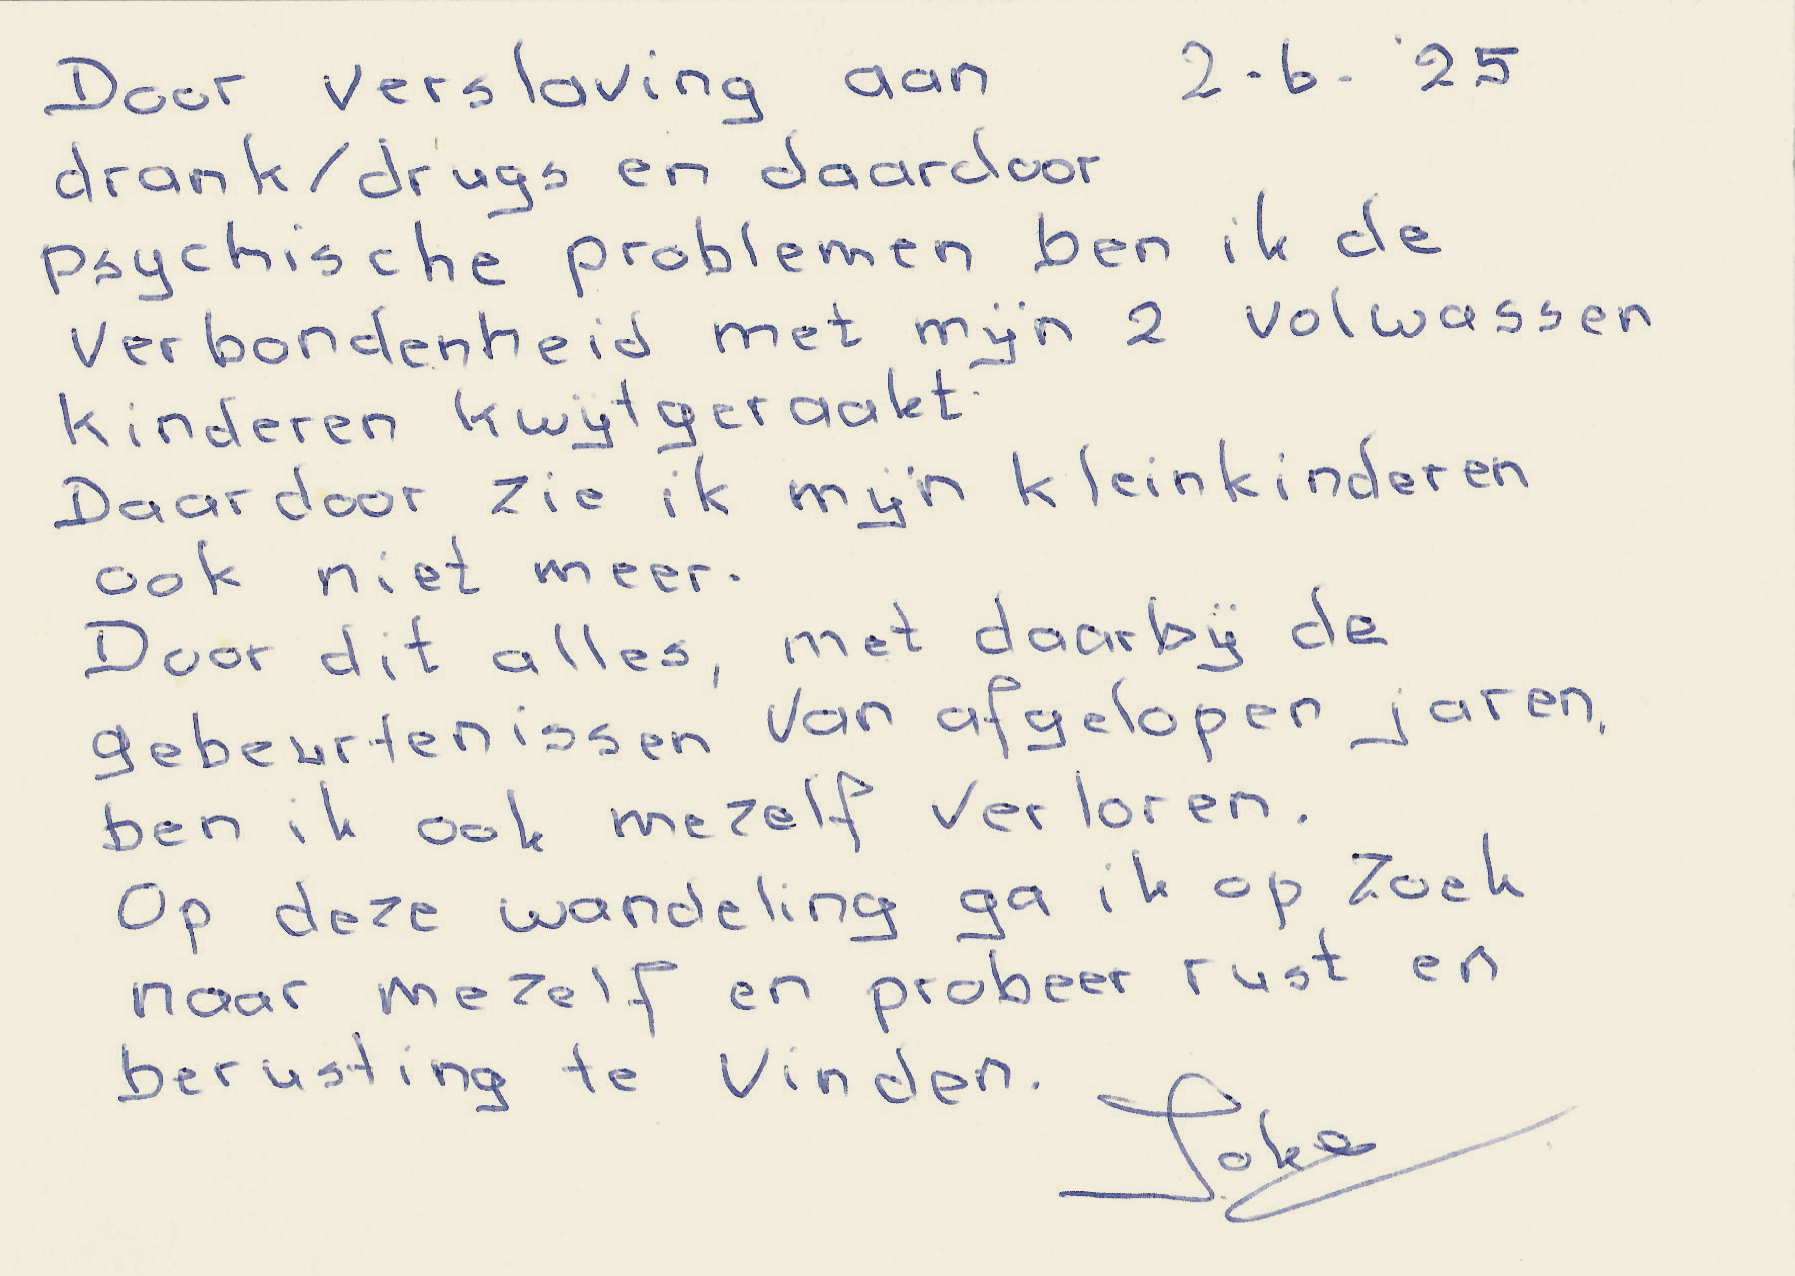 Door verslaving aan 2-6-'25
drank/drugs en daardoor
psychische problemen ben ik de
verbondenheid met mijn 2 volwassen
kinderen kwijtgeraakt.
Daardoor zie ik mijn kleinkinderen
ook niet meer.
Door dit alles, met daarbij de
gebeurtenissen van afgelopen jaren,
ben ik ook mezelf verloren.
Op deze wandeling ga ik op zoek
naar mezelf en probeer rust en
berusting te vinden.
Joke